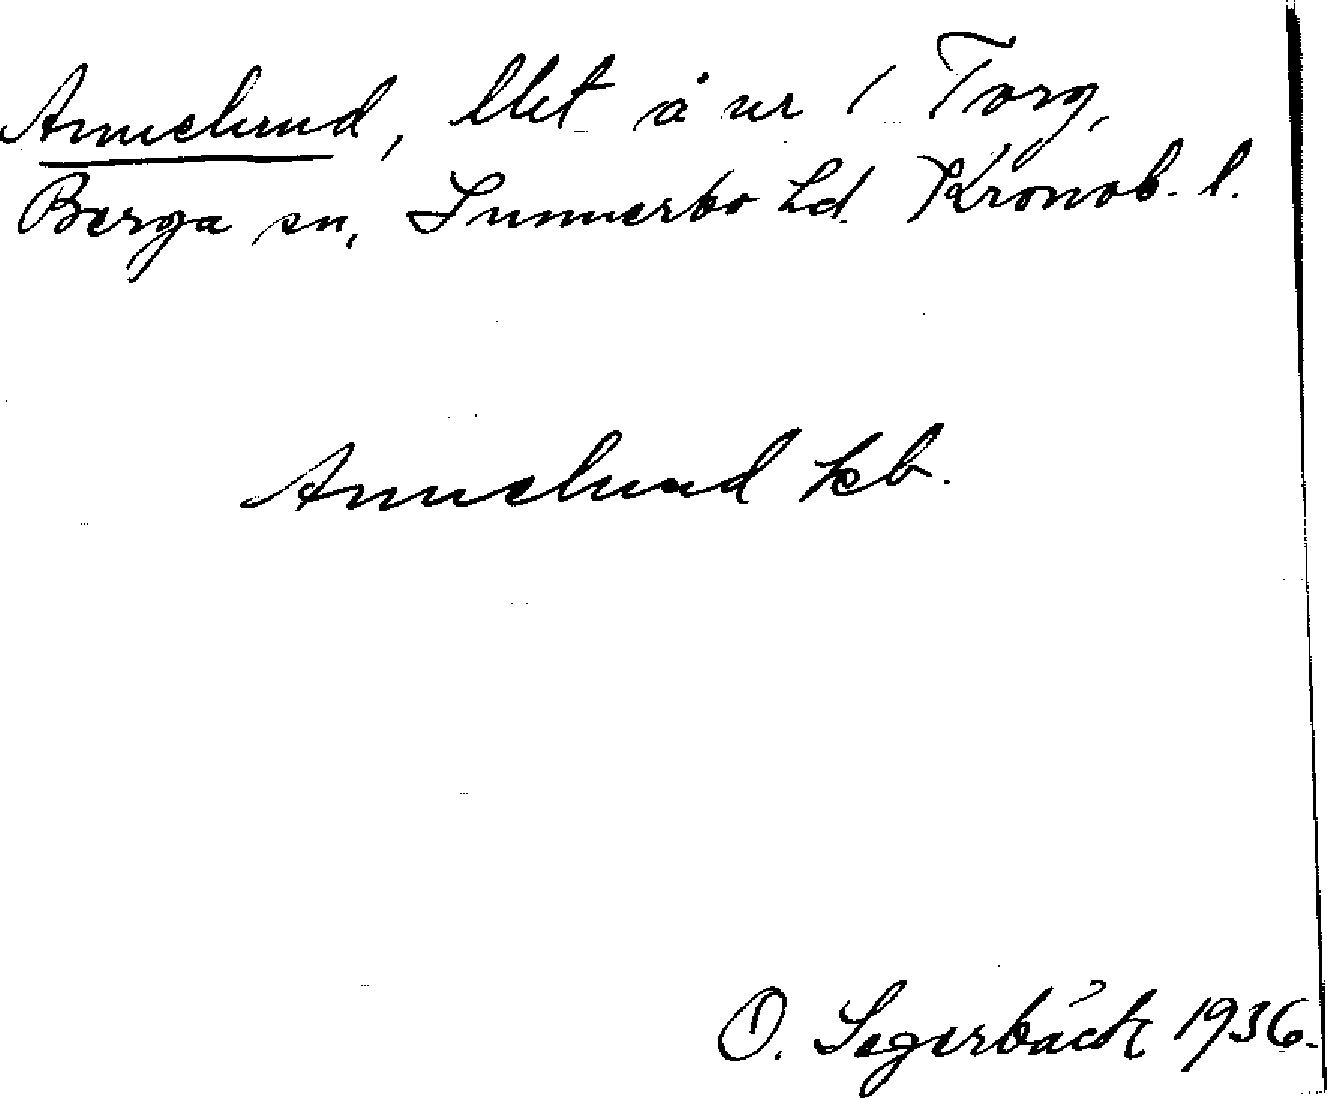 Annelund, llht å nr 1 Torg,
Berga sn, Sunnerbo hd. Kronob. l.
Annelund kb.
O. Segerbäck 1936.